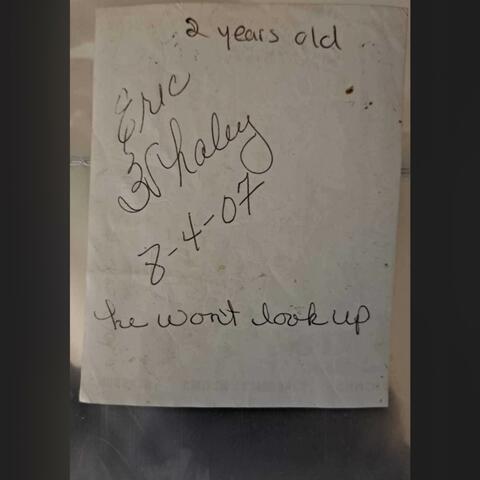 2 years old
Eric
Whaley
8-4-07
he won't look up